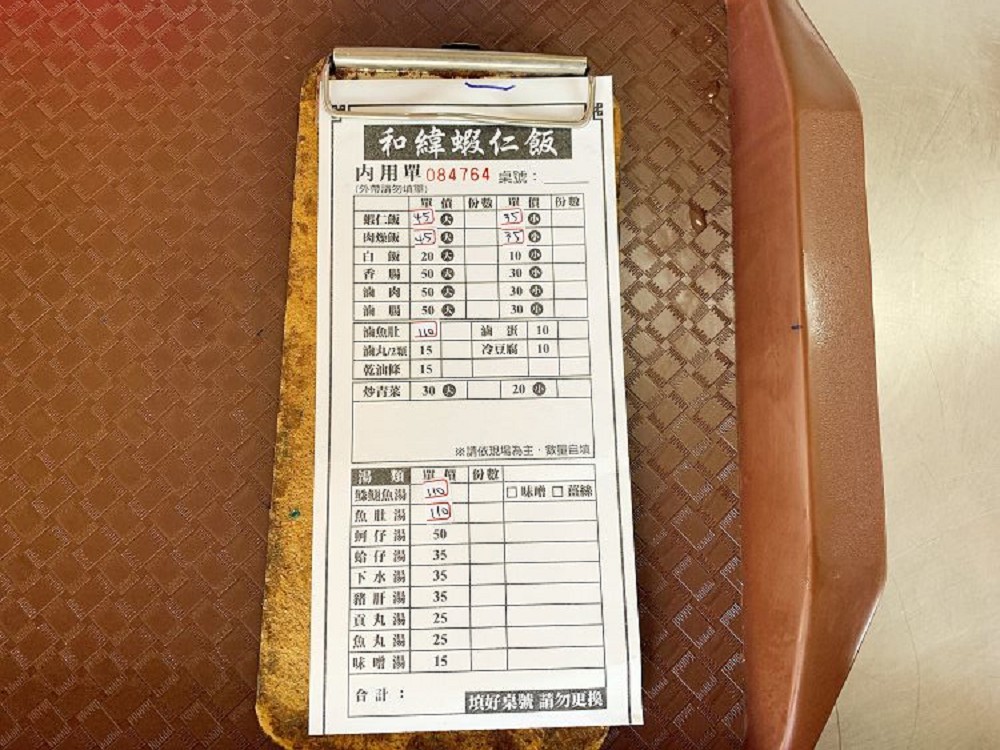 和緯蝦仁飯
內用單 084764 桌號：
(外帶請勿填單)
單價 份數 單價 份數
蝦仁飯 45 大 35 小
肉燥飯 45 大 35 小
白飯 20 大 10 小
香腸 50 大 30 小
滷肉 50 大 30 小
滷腸 50 大 30 小
滷魚肚 110 滷蛋 10
滷丸/2顆 15 冷豆腐 10
乾油條 15
炒青菜 30 大 20 小
※請依現場為主，數量自填
湯類 單價 份數
鯽魚湯 110 □味噌 □薑絲
魚肚湯 110
蚵仔湯 50
蛤仔湯 35
下水湯 35
豬肝湯 35
貢丸湯 25
魚丸湯 25
味噌湯 15
合計：
填好桌號 請勿更換